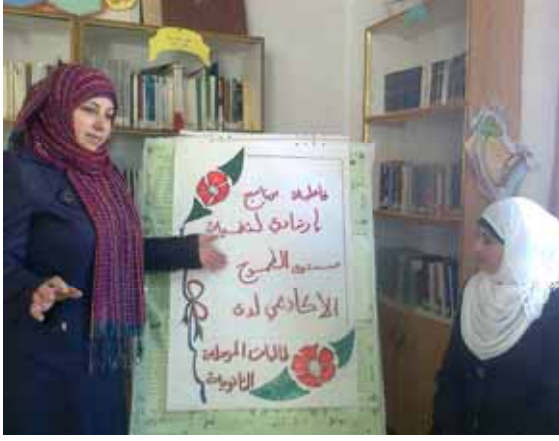 فاعلية برنامج
إرشادي لتنمية
مستوى الطموح
الأكاديمي لدى
طالبات المرحلة
الثانوية